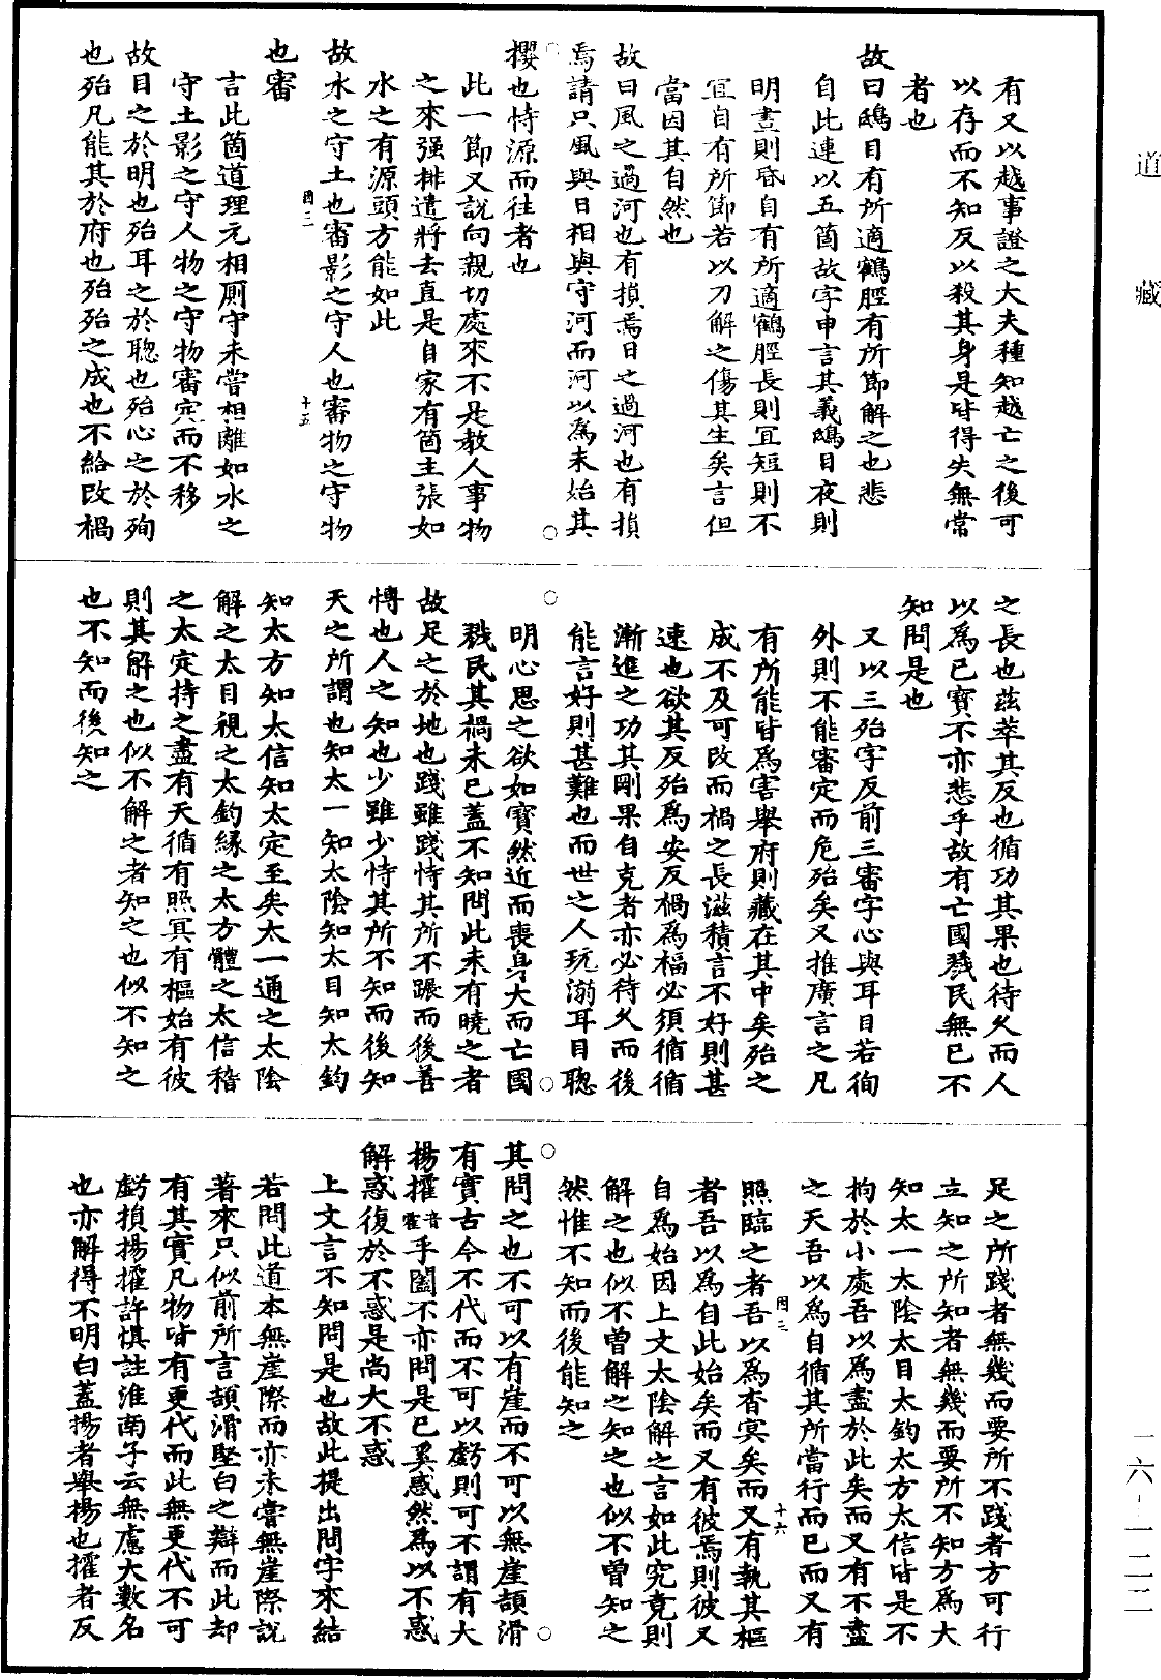 道藏
有又以越事證之大夫種知越亡之後可
以存而不知反以殺其身是皆得失無常
者也
故曰鴟目有所適鶴脛有所節解之也悲
自此連以五箇故字申言其義鴟目夜則
明晝則昏自有所適鶴脛長則宜短則不
宜自有所節若以刀解之傷其生矣言但
當因其自然也
故曰風之過河也有損焉日之過河也有損
焉請只風與日相與守河而河以為未始其
攖也恃源而往者也
此一節又說向親切處來不是教人事物
之來强排遣將去直是自家有箇主張如
水之有源頭方能如此
故水之守土也審影之守人也審物之守物
也審
言此箇道理元相厠守未嘗相離如水之
守土影之守人物之守物審定而不移
故目之於明也殆耳之於聰也殆心之於殉
也殆凡能其於府也殆殆之成也不給改禍
之長也茲萃其反也循功其果也待久而人
以為已寶不亦悲乎故有亡國戮民無已不
知問是也
又以三殆字反前三審字心與耳目若徇
外則不能審定而危殆矣又推廣言之凡
有所能皆為害舉府則藏在其中矣殆之
成不及可改而禍之長滋積言不好則甚
速也欲其反殆為安反禍為福必須循循
漸進之功其剛果自克者亦必待久而後
能言好則甚難也而世之人玩溺耳目聰
明心思之欲如寶然近而喪身大而亡國
戮民其禍未已蓋不知問此未有曉之者
故足之於地也踐雖踐恃其所不蹍而後善
愽也人之知也少雖少恃其所不知而後知
天之所謂也知太一知太陰知太目知太鈞
知太方知太信知太定至矣太一通之太陰
解之太目視之太鈞緣之太方體之太信稽
之太定持之盡有天循有照冥有樞始有彼
則其解之也似不解之者知之也似不知之
也不知而後知之
足之所踐者無幾而要所不踐者方可行
立知之所知者無幾而要所不知方為大
知太一太陰太目太鈞太方太信皆是不
拘於小處吾以為盡於此矣而又有不盡
之天吾以為自循其所當行而已而又有
照臨之者吾以為杳冥矣而又有執其樞
者吾以為自此始矣而又有彼焉則彼又
自為始因上文太陰解之言如此究竟則
解之也似不曾解之知之也似不曾知之
然惟不知而後能知之
其問之也不可以有崖而不可以無崖頡滑
有實古今不代而不可以虧則可不謂有大
揚搉音霍乎闔不亦問是已奚惑然為以不惑
解惑復於不惑是尚大不惑
上文言不知問是也故此提出問字來結
若問此道本無崖際而亦未嘗無崖際說
著來只似前所言頡滑堅白之辯而此却
有其實凡物皆有更代而此無更代不可
虧損揚搉許慎註淮南子云無慮大數名
也亦解得不明白蓋揚者舉揚也搉者反
二六-一二二